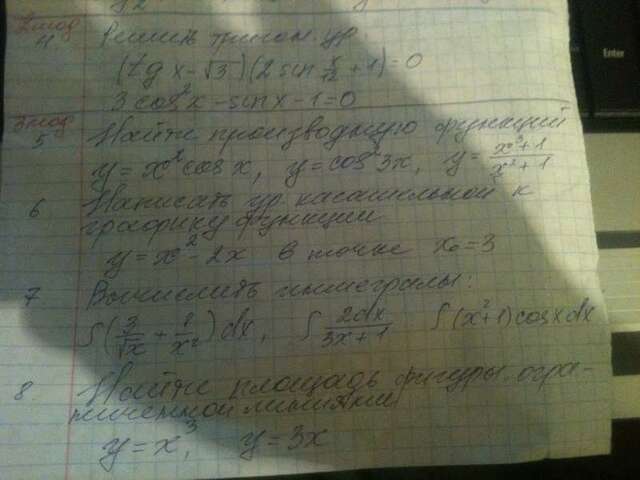 2 мод
4 Решить тригон. ур.
(tg x - √3)(2 sin x/12 + 1) = 0
3 cos² x - sin x - 1 = 0
3 мод
5 Найти производную функций
y = x² cos x, y = cos² 3x, y = (x³+1)/(x²+1)
6 Написать ур. касательной к
графику функции
y = x² - 2x в точке x₀ = 3
7. Вычислить интегралы:
∫(3/√x + 1/x²) dx, ∫ 2dx/(3x+1) ∫(x²+1) cos x dx
8 Найти площадь фигуры, огра-
ниченной линиями
y = x³, y = 3x
Enter